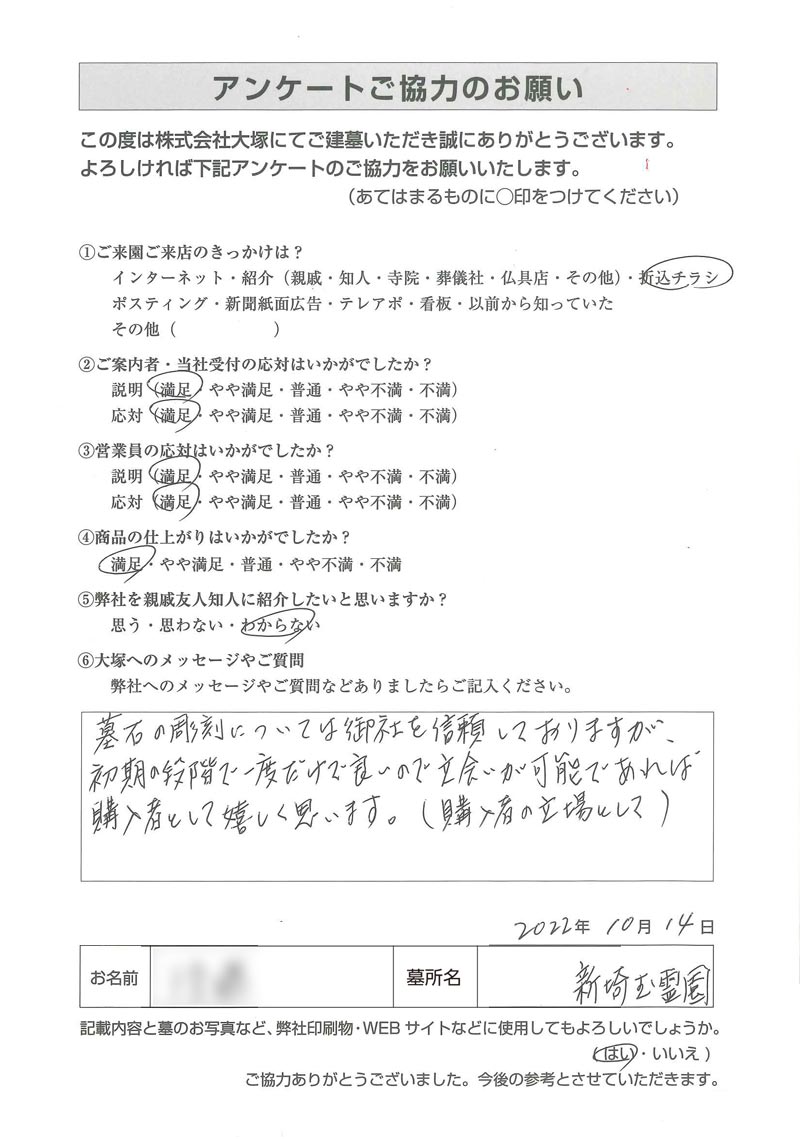 アンケートご協力のお願い
この度は株式会社大塚にてご建墓いただき誠にありがとうございます。
よろしければ下記アンケートのご協力をお願いいたします。
（あてはまるものに〇印をつけてください）
①ご来園ご来店のきっかけは？
インターネット・紹介（親戚・知人・寺院・葬儀社・仏具店・その他）・折込チラシ
ポスティング・新聞紙面広告・テレアポ・看板・以前から知っていた
その他（　　　　　　）
②ご案内者・当社受付の応対はいかがでしたか？
説明（満足・やや満足・普通・やや不満・不満）
応対（満足・やや満足・普通・やや不満・不満）
③営業員の応対はいかがでしたか？
説明（満足・やや満足・普通・やや不満・不満）
応対（満足・やや満足・普通・やや不満・不満）
④商品の仕上がりはいかがでしたか？
満足・やや満足・普通・やや不満・不満
⑤弊社を親戚友人知人に紹介したいと思いますか？
思う・思わない・わからない
⑥大塚へのメッセージやご質問
弊社へのメッセージやご質問などありましたらご記入ください。
墓石の彫刻については御社を信頼しておりますが、
初期の段階で一度だけで良いので立会いが可能であれば
購入者として嬉しく思います。（購入者の立場として）
2022年 10月 14日
お名前 墓所名 新埼玉霊園
記載内容と墓のお写真など、弊社印刷物・WEBサイトなどに使用してもよろしいでしょうか。
（はい・いいえ）
ご協力ありがとうございました。今後の参考とさせていただきます。